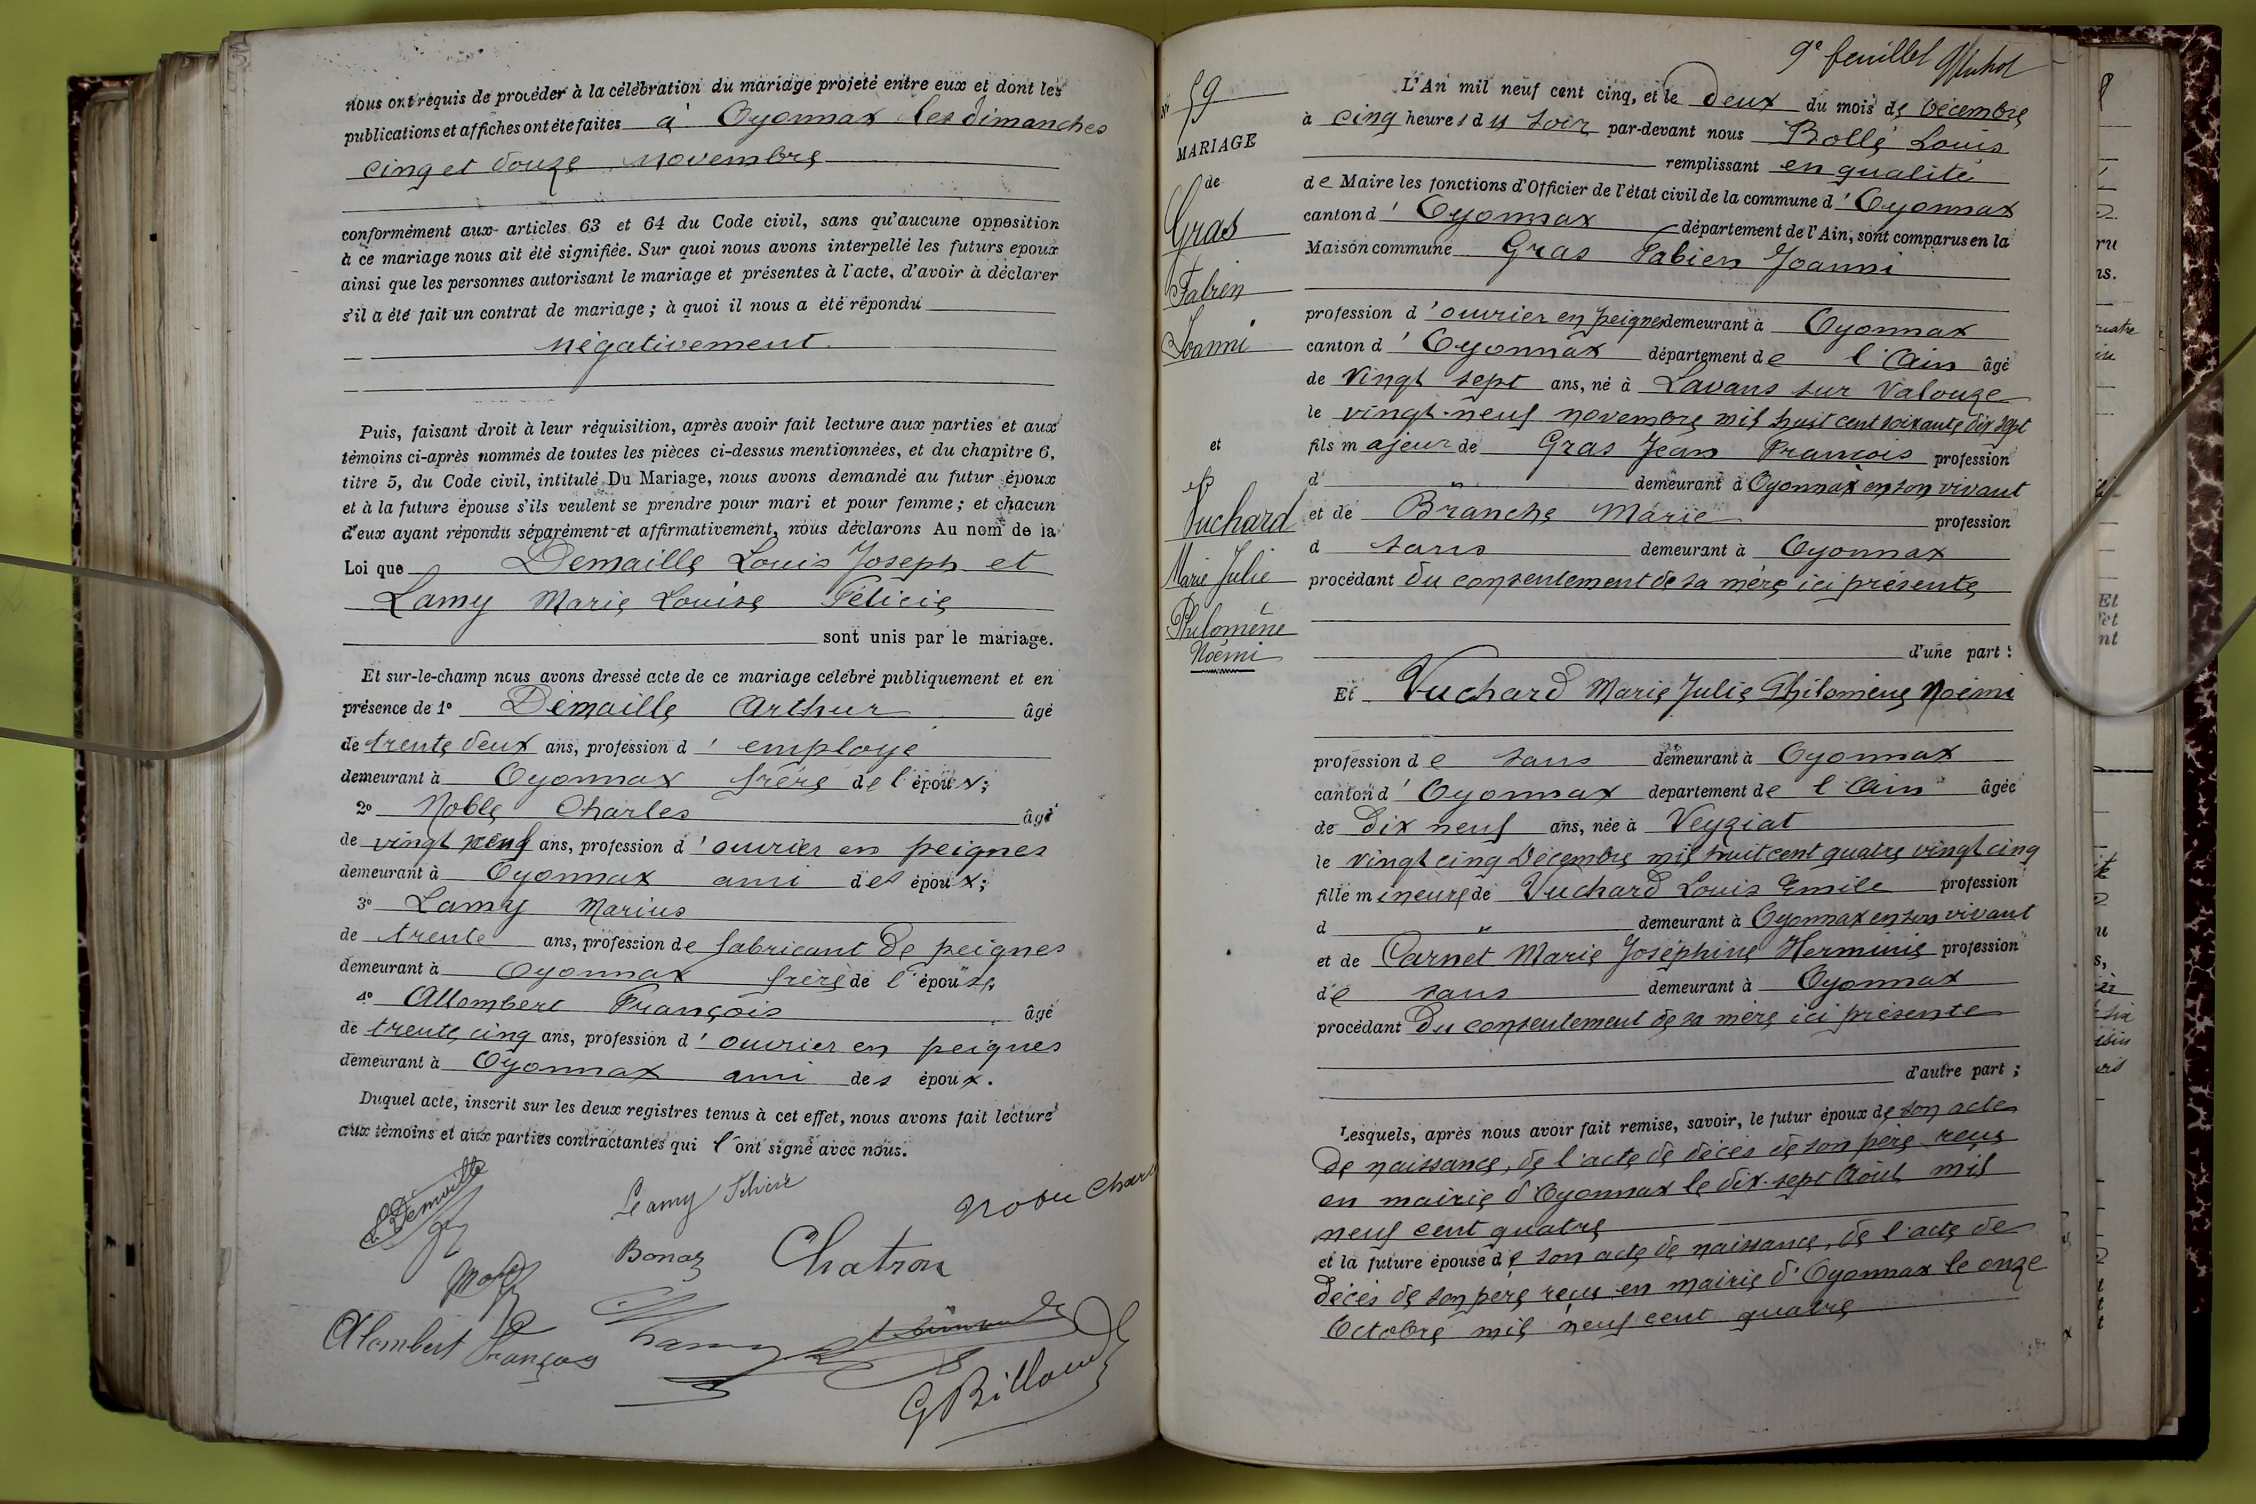 nous ont requis de procéder à la célébration du mariage projeté entre eux et dont les
publications et affiches ont été faites à Oyonnax les dimanches
cinq et douze novembre
conformément aux articles 63 et 64 du Code civil, sans qu'aucune opposition
à ce mariage nous ait été signifiée. Sur quoi nous avons interpellé les futurs époux
ainsi que les personnes autorisant le mariage et présentes à l'acte, d'avoir à déclarer
s'il a été fait un contrat de mariage ; à quoi il nous a été répondu
négativement.
Puis, faisant droit à leur réquisition, après avoir fait lecture aux parties et aux
témoins ci-après nommés de toutes les pièces ci-dessus mentionnées, et du chapitre 6,
titre 5, du Code civil, intitulé Du Mariage, nous avons demandé au futur époux
et à la future épouse s'ils veulent se prendre pour mari et pour femme ; et chacun
d'eux ayant répondu séparément et affirmativement, nous déclarons Au nom de la
Loi que Demaille Louis Joseph et
Lamy Marie Louise Félicie
sont unis par le mariage.
Et sur-le-champ nous avons dressé acte de ce mariage célébré publiquement et en
présence de 1° Démaille Arthur âgé
de trente deux ans, profession d'employé
demeurant à Oyonnax frère de l'époux;
2° Noble Charles âgé
de vingt neuf ans, profession d'ouvrier en peignes
demeurant à Oyonnax ami des époux;
3° Lamy Marius
de trente ans, profession de fabricant de peignes
demeurant à Oyonnax frère de l'épouse;
4° Allombert François âgé
de trente cinq ans, profession d'ouvrier en peignes
demeurant à Oyonnax ami des époux.
Duquel acte, inscrit sur les deux registres tenus à cet effet, nous avons fait lecture
aux témoins et aux parties contractantes qui l'ont signé avec nous.
Demaille
Lamy
Bonaz
Chatron
Alombert François
G Billoud
9e feuillet
N° 59
MARIAGE
de
Gras
Fabien
Joanni
et
Vuchard
Marie Julie
Philomène
Noémi
L'An mil neuf cent cinq, et le deux du mois de Décembre
à cinq heures du soir par-devant nous Bollé Louis
remplissant en qualité
de Maire les fonctions d'Officier de l'état civil de la commune d'Oyonnax
canton d'Oyonnax département de l'Ain, sont comparus en la
Maison commune Gras Fabien Joanni
profession d'ouvrier en peignes demeurant à Oyonnax
canton d'Oyonnax département de l'Ain âgé
de vingt sept ans, né à Lavans sur Valouze
le vingt-neuf novembre mil huit cent soixante dix sept
fils majeur de Gras Jean François profession
d " demeurant à Oyonnax en son vivant
et de Branche Marie profession
d sans demeurant à Oyonnax
procédant du consentement de sa mère ici présente
d'une part :
Et Vuchard Marie Julie Philomène Noémi
profession de sans demeurant à Oyonnax
canton d'Oyonnax département de l'Ain âgée
de Dix neuf ans, née à Veyziat
le vingt cinq Décembre mil huit cent quatre vingt cinq
fille mineure de Vuchard Louis Emile profession
d " demeurant à Oyonnax en son vivant
et de Carnet Marie Joséphine Herminie profession
de sans demeurant à Oyonnax
procédant du consentement de sa mère ici présente
d'autre part ;
Lesquels, après nous avoir fait remise, savoir, le futur époux de son acte
de naissance, de l'acte de décès de son père reçu
en mairie d'Oyonnax le dix-sept Août mil
neuf cent quatre
et la future épouse de son acte de naissance, de l'acte de
décès de son père reçu en mairie d'Oyonnax le onze
Octobre mil neuf cent quatre